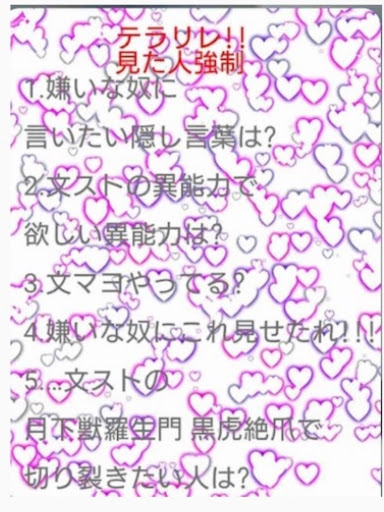 テラリレ!!
見た人強制
1.嫌いな奴に
言いたい隠し言葉は?
2.文ストの異能力で
欲しい異能力は?
3.文マヨやってる?
4.嫌いな奴にこれ見せたれ!!!
5....文ストの
月下獣羅生門 黒虎絶爪で
切り裂きたい人は?